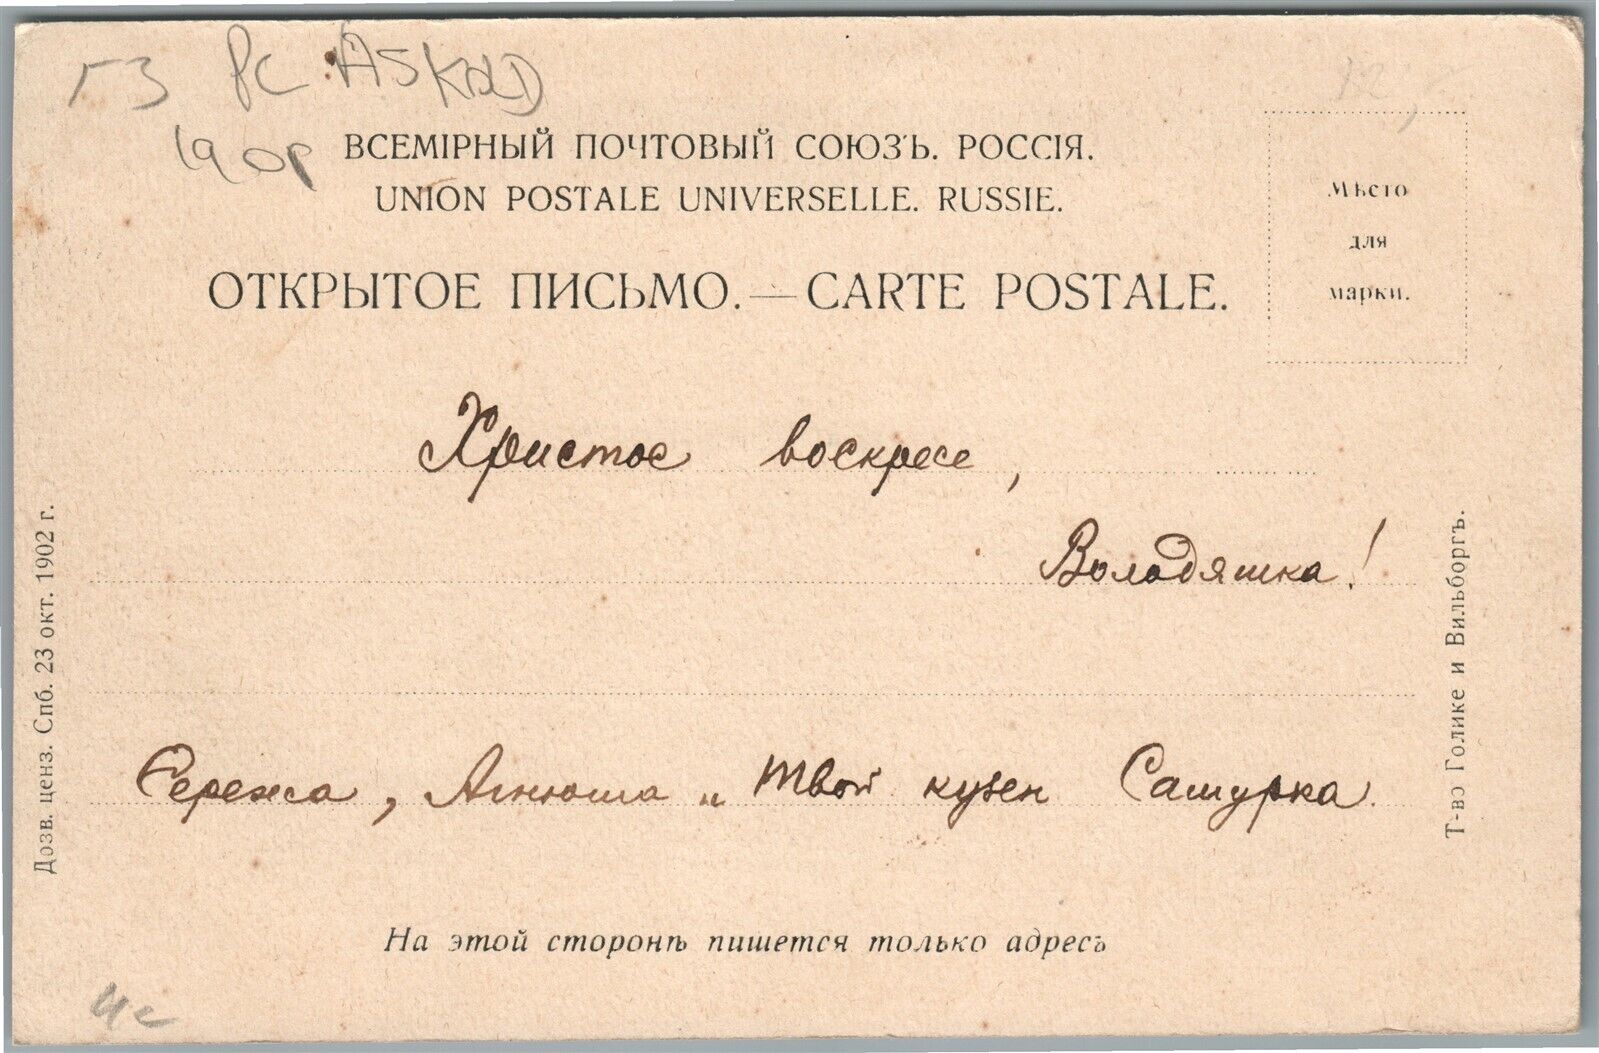 ГЗ РС ASKOLD
190р
ВСЕМІРНЫЙ ПОЧТОВЫЙ СОЮЗЪ. РОССІЯ.
UNION POSTALE UNIVERSELLE. RUSSIE.
ОТКРЫТОЕ ПИСЬМО.—CARTE POSTALE.
Мѣсто
для
марки.
Христос воскресе,
Володяшка!
Сережа, Агнюша и твой кузен Сашурка.
На этой сторонѣ пишется только адресъ
Дозв. ценз. Спб. 23 окт. 1902 г.
Т-во Голике и Вильборгъ.